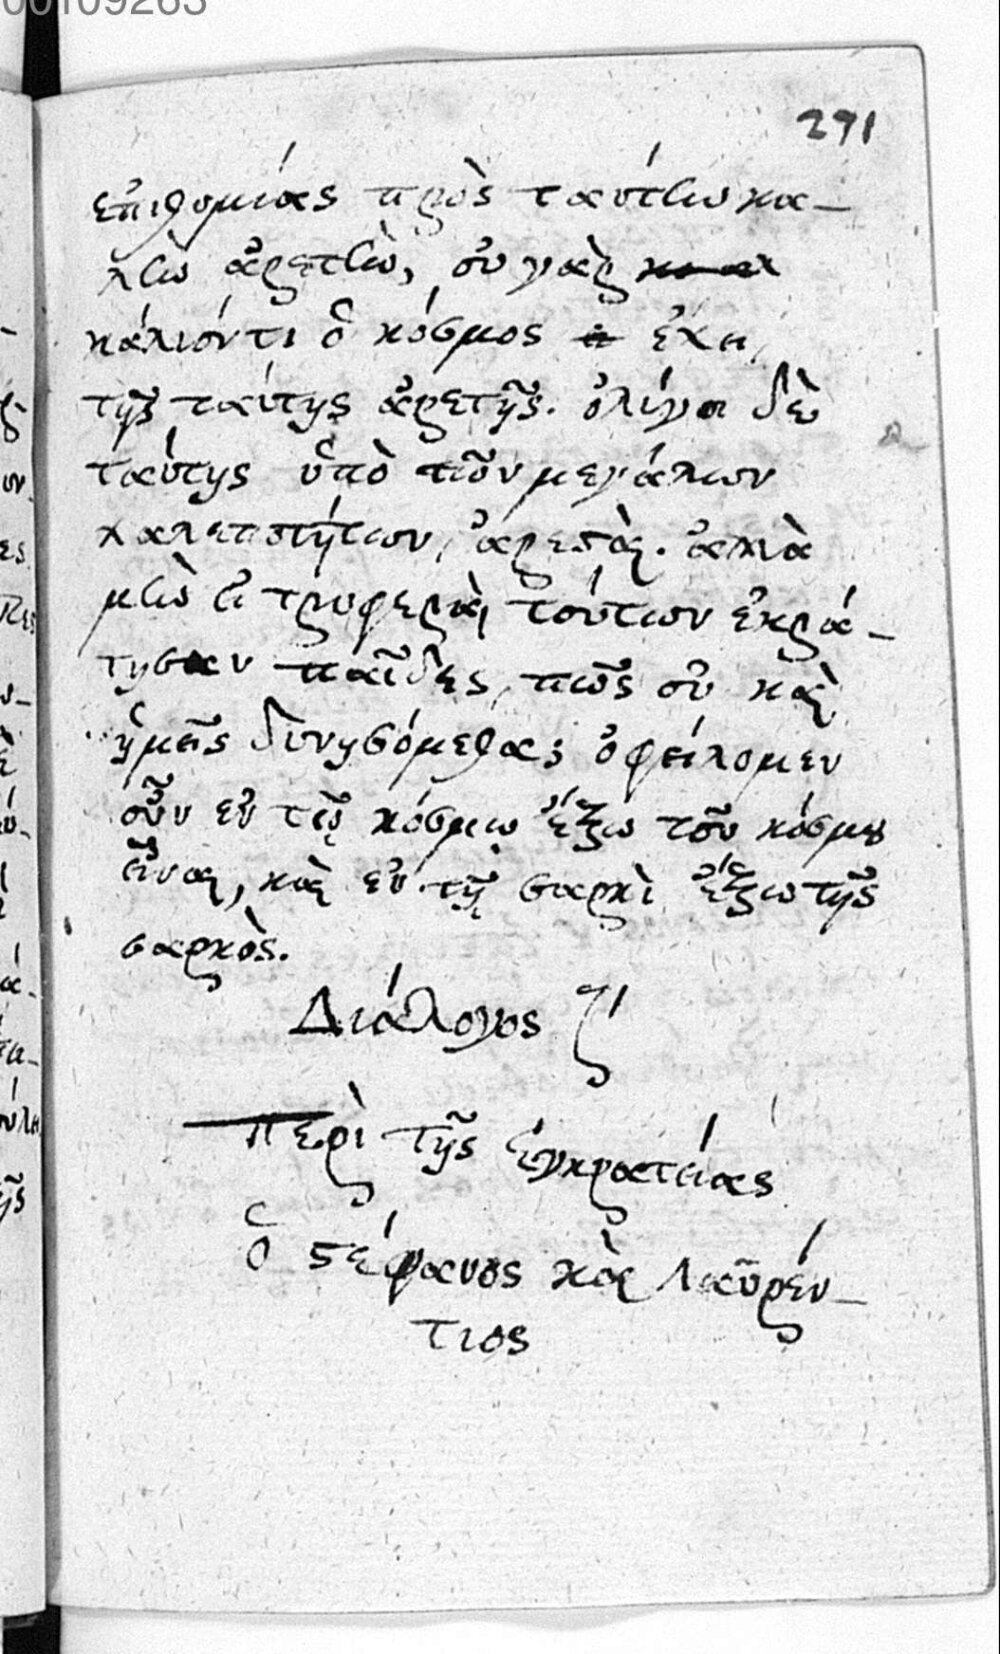 00109263
271
ἐπιθυμίας πρὸς ταύτην κα-
λὴν ἀρετὴν, οὐ γὰρ
κάλιόν τι ὁ κόσμος ἔχει,
τῆς ταύτης ἀρετῆς. ὀλίγοι δὲ
ταύτης ὑπὸ τῶν μεγάλων
χαλεποτήτων,
μὴν εἰ τρυφεραὶ τούτων ἐκρά-
τησαν παῖδες, πῶς οὐ καὶ
ἡμεῖς δυνησόμεθας; ὀφείλομεν
οὖν ἐν τῷ κόσμῳ ἔξω τοῦ κόσμου
εἶναι, καὶ ἐν τῇ σαρκὶ ἔξω τῆς
σαρκὸς.
Διάλογος ζ'
Περὶ τῆς ἐγκρατείας
ὁ Στέφανος καὶ Λαυρέν-
τιος